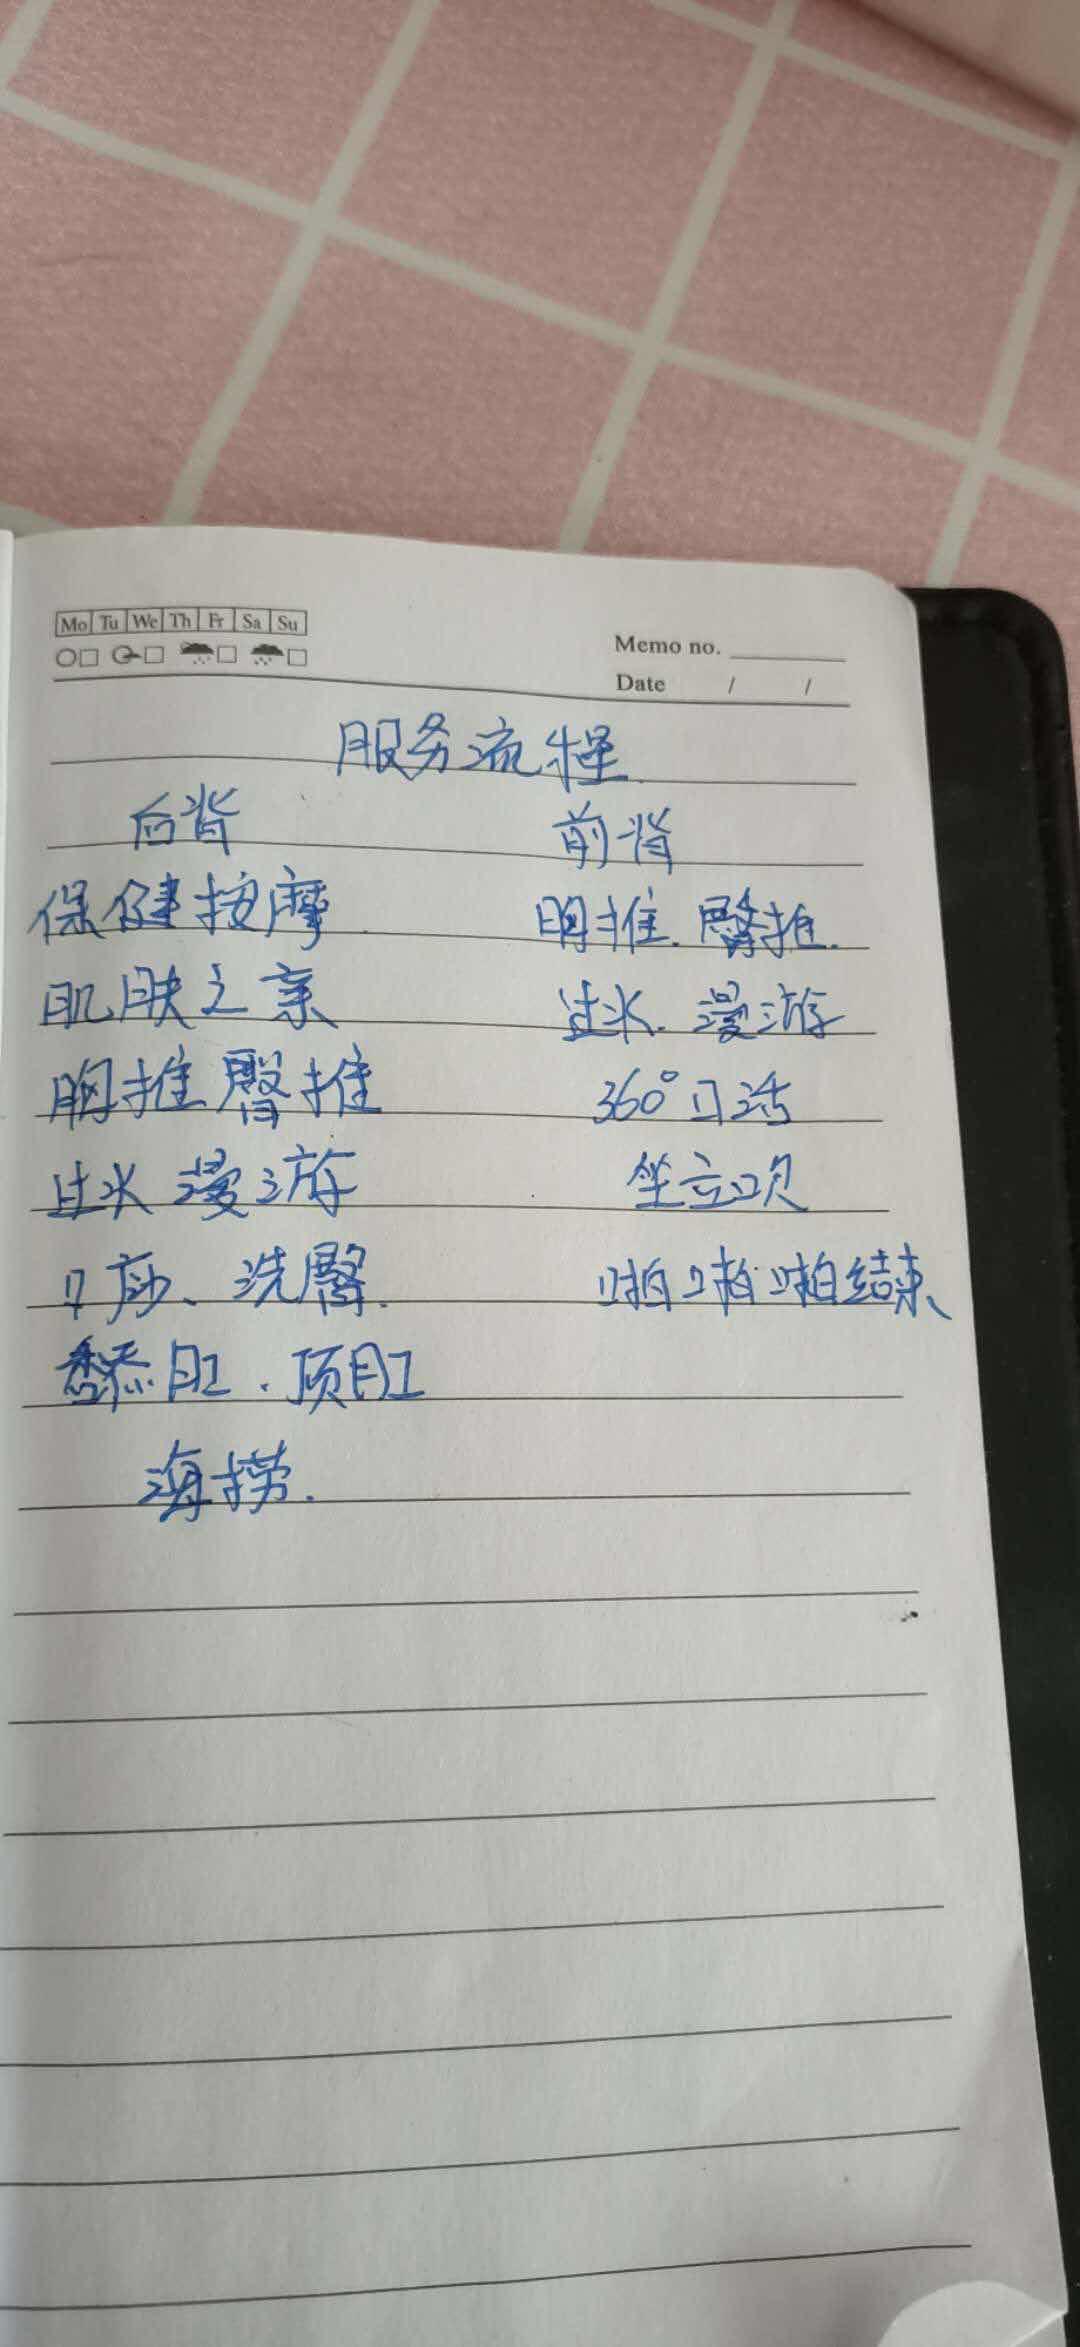 Mo Tu We Th Fr Sa Su
Memo no.
Date / /
服务流程
后背 前背
保健按摩 胸推.臀推.
肌肤之亲 过水.漫游
胸推臀推 360°口活
过水漫游 坐立口爻
口 、洗臀. 啪啪啪结束
舔肛.顶肛
海捞.